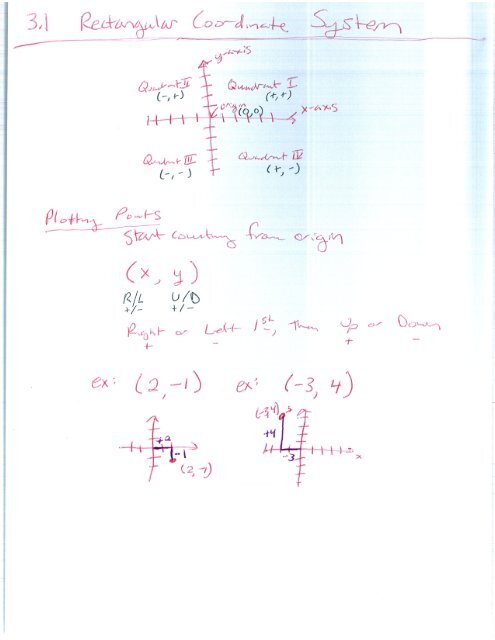 3.1 Rectangular Coordinate System
y-axis
Quadrant II
(-,+)
Quadrant I
(+,+)
origin (0,0)
x-axis
Quadrant III
(-,-)
Quadrant IV
(+,-)
Plotting Points
Start counting from origin
(x, y)
R/L U/D
+/- +/-
Right or Left 1st, then up or Down
+ - + -
ex: (2, -1) ex: (-3, 4)
+2
-1
(2,-1)
(-3,4)
+4
-3
x